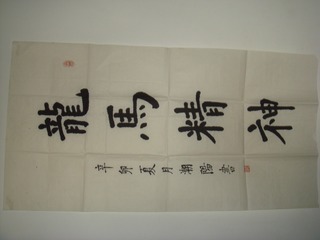 龍馬精神
辛卯夏月潮陽書